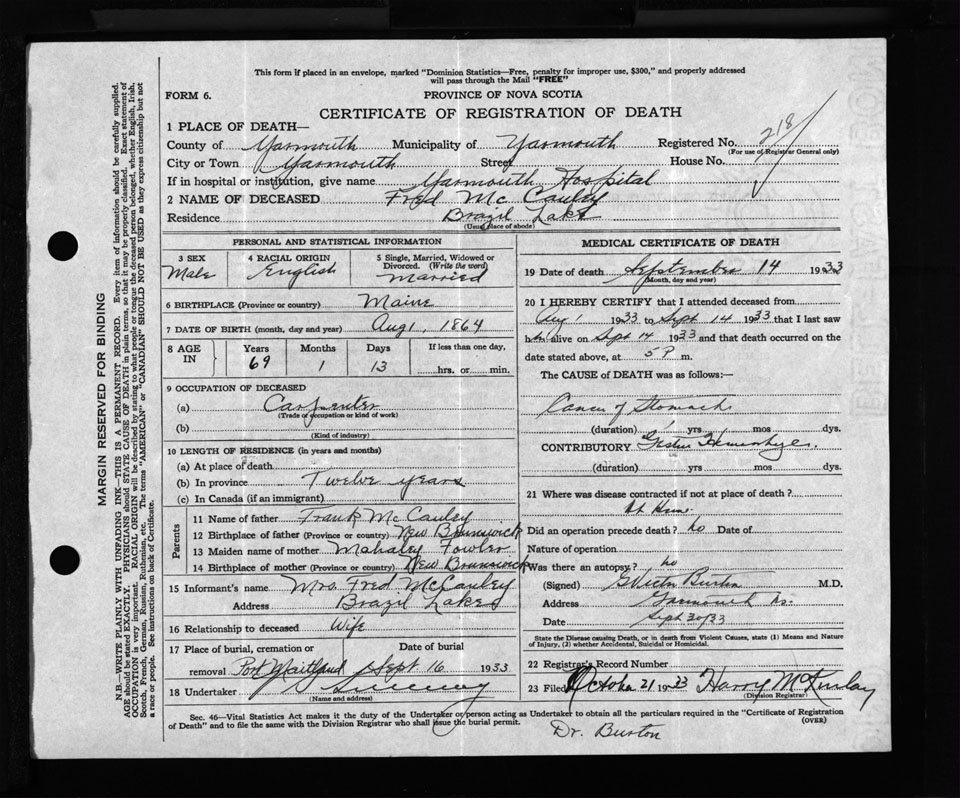 This form if placed in an envelope, marked "Dominion Statistics—Free, penalty for improper use, $300," and properly addressed
will pass through the Mail "FREE"
FORM 6.
PROVINCE OF NOVA SCOTIA
CERTIFICATE OF REGISTRATION OF DEATH
1 PLACE OF DEATH—
218
County of Yarmouth Municipality of Yarmouth Registered No.
(For use of Registrar General only)
City or Town Yarmouth Street House No.
If in hospital or institution, give name Yarmouth Hospital
2 NAME OF DECEASED Fred McCauley
Residence Brazil Lake
(Usual place of abode)
PERSONAL AND STATISTICAL INFORMATION
3 SEX Male
4 RACIAL ORIGIN English
5 Single, Married, Widowed or Divorced. (Write the word) Married
6 BIRTHPLACE (Province or country) Maine
7 DATE OF BIRTH (month, day and year) Aug 1, 1864
8 AGE IN Years 69 Months 1 Days 13 If less than one day, hrs. or min.
9 OCCUPATION OF DECEASED
(a) Carpenter
(Trade or occupation or kind of work)
(b)
(Kind of industry)
10 LENGTH OF RESIDENCE (in years and months)
(a) At place of death
(b) In province Twelve years
(c) In Canada (if an immigrant)
Parents
11 Name of father Frank McCauley
12 Birthplace of father (Province or country) New Brunswick
13 Maiden name of mother Mahaley Fowler
14 Birthplace of mother (Province or country) New Brunswick
15 Informant's name Mrs. Fred McCauley
Address Brazil Lake
16 Relationship to deceased Wife
17 Place of burial, cremation or removal Port Maitland
Date of burial Sept 16 1933
18 Undertaker
(Name and address)
MEDICAL CERTIFICATE OF DEATH
19 Date of death September 14 1933
(Month, day and year)
20 I HEREBY CERTIFY that I attended deceased from
Aug 1 1933 to Sept 14 1933 that I last saw
him alive on Sept 14 1933 and that death occurred on the
date stated above, at 5 P m.
The CAUSE of DEATH was as follows:—
Cancer of Stomach
(duration) 1 yrs mos dys.
CONTRIBUTORY Gastric Hemorrhages.
(duration) yrs mos dys.
21 Where was disease contracted if not at place of death?
At Home
Did an operation precede death? No Date of
Nature of operation
Was there an autopsy? No
(Signed) G Victor Burton M.D.
Address Yarmouth N.S.
Date Sept 30/33
State the Disease causing Death, or in death from Violent Causes, state (1) Means and Nature
of Injury, (2) whether Accidental, Suicidal or Homicidal.
22 Registrar's Record Number
23 Filed October 21 1933 Harry McKinlay
(Division Registrar)
Sec. 46—Vital Statistics Act makes it the duty of the Undertaker or person acting as Undertaker to obtain all the particulars required in the "Certificate of Registration
of Death" and to file the same with the Division Registrar who shall issue the burial permit.
(OVER)
Dr. Burton
MARGIN RESERVED FOR BINDING
N.B.—WRITE PLAINLY WITH UNFADING INK—THIS IS A PERMANENT RECORD. Every item of information should be carefully supplied.
AGE should be stated EXACTLY. PHYSICIANS should STATE CAUSE OF DEATH in plain terms, so that it may be properly classified. Exact statement of
OCCUPATION is very important. RACIAL ORIGIN will be described by stating to what people or tongue the deceased person belonged, whether English, Irish,
Scotch, French, German, Russian, Ruthenian, etc. The terms "AMERICAN" or "CANADIAN" SHOULD NOT BE USED as they express citizenship but not
a race or people. See instructions on back of Certificate.